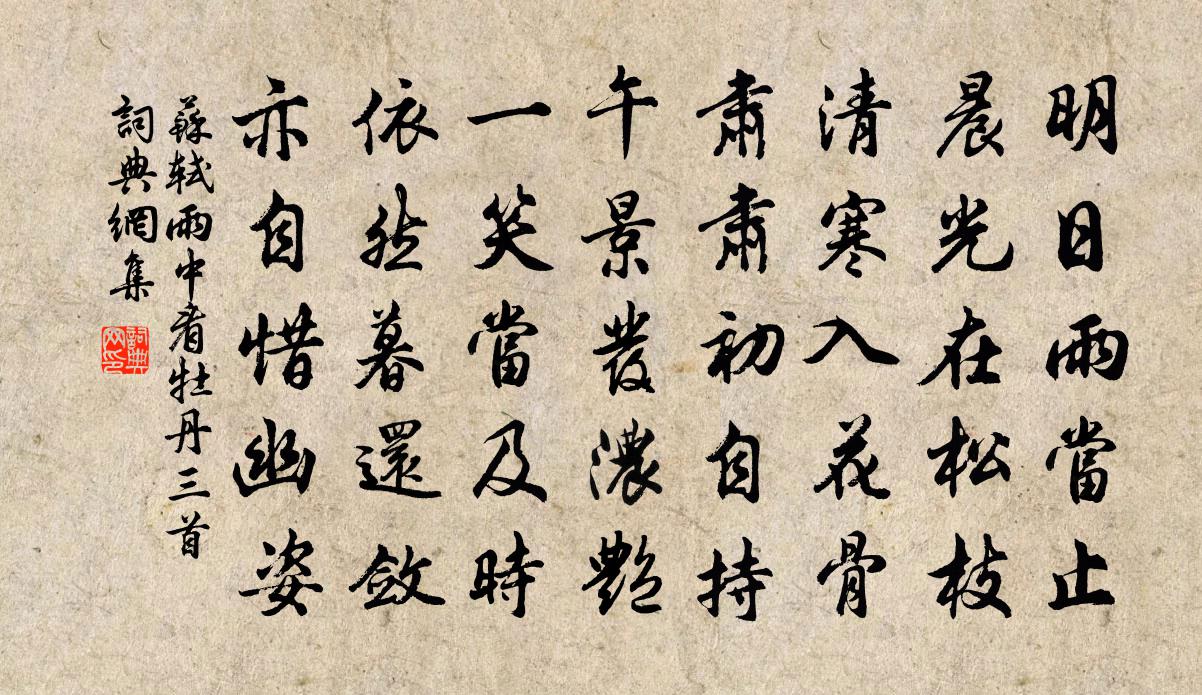 明日雨當止
晨光在松枝
清寒入花骨
肅肅初自持
午景發濃艷
一笑當及時
依然暮還斂
亦自惜幽姿
蘇軾雨中看牡丹三首
詞典網集
詞典网印